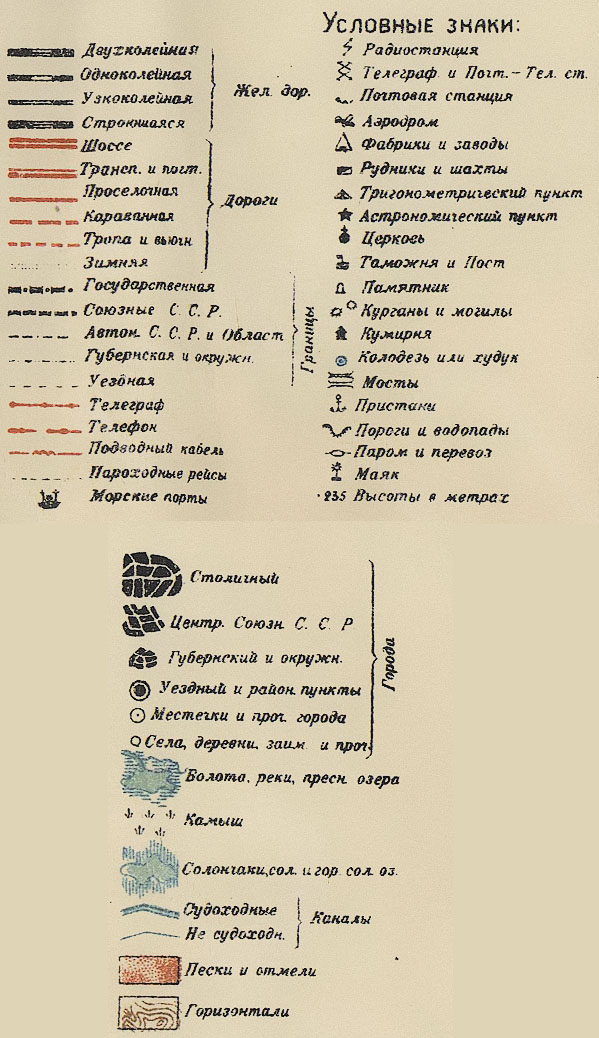 Условные знаки:
Двухколейная
Одноколейная
Узкоколейная
Строющаяся
Жел. дор.
Шоссе
Трансп. и почт.
Проселочная
Караванная
Тропа и вьючн.
Зимняя
Дороги
Государственная
Союзные С. С. Р.
Автон. С. С. Р. и Област
Губернская и окружн.
Уездная
Границы
Телеграф
Телефон
Подводный кабель
Пароходные рейсы
Морские порты
Радиостанция
Телеграф и Почт.-Тел. ст.
Почтовая станция
Аэродром
Фабрики и заводы
Рудники и шахты
Тригонометрический пункт
Астрономический пункт
Церковь
Таможня и Пост
Памятник
Курганы и могилы
Кумирня
Колодезь или худук
Мосты
Пристани
Пороги и водопады
Паром и перевоз
Маяк
·235 Высоты в метрах
Столичный
Центр. Союзн. С. С. Р
Губернский и окружн.
Уездный и район. пункты
Местечки и проч. города
Села, деревни, заим. и проч.
Города
Болота, реки, пресн. озера
Камыш
Солончаки, сол. и гор. сол. оз.
Судоходные
Не судоходн.
Каналы
Пески и отмели
Горизонтали